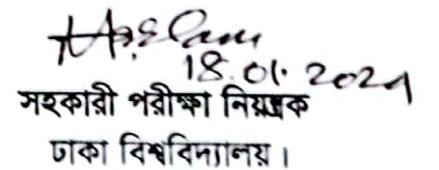 18.01.2021
সহকারী পরীক্ষা নিয়ন্ত্রক
ঢাকা বিশ্ববিদ্যালয়।